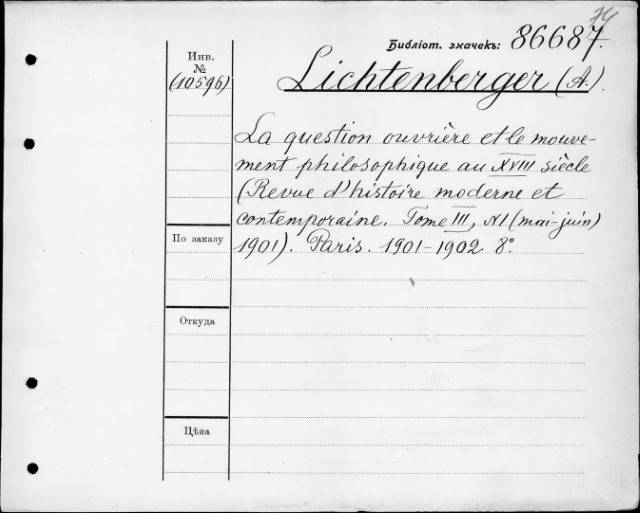 74
Библіот. значекъ: 86687.
Инв.
№
(10596)
Lichtenberger (A.).
La question ouvrière et le mouve-
ment philosophique au XVIII siècle
(Revue d'histoire moderne et
contemporaine. Tome III, N1 (mai-juin)
1901). Paris. 1901-1902 8°
По заказу
Откуда
Цѣна